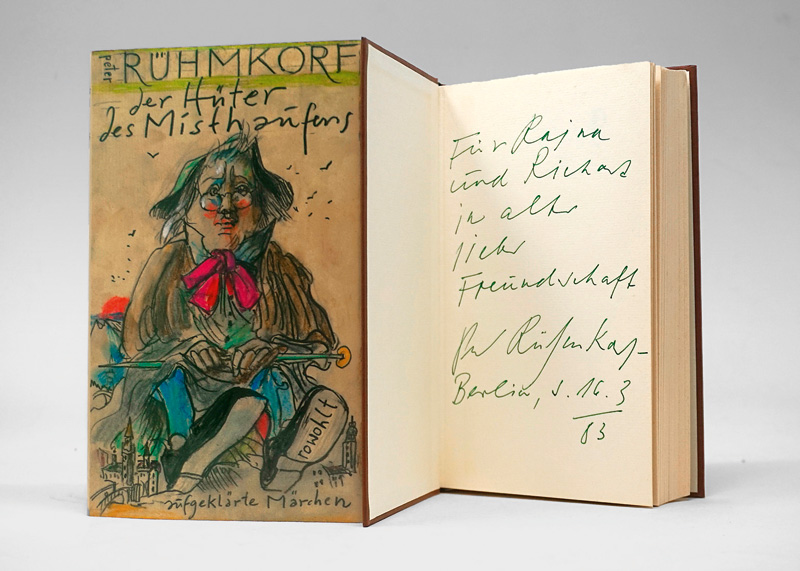 peter
RÜHMKORF
der Hüter
des Misthaufens
rowohlt
aufgeklärte Märchen
Für Rajna
und Richard
in alter
lieber
Freundschaft
Rühmkorf
Berlin, d. 16. 3
83